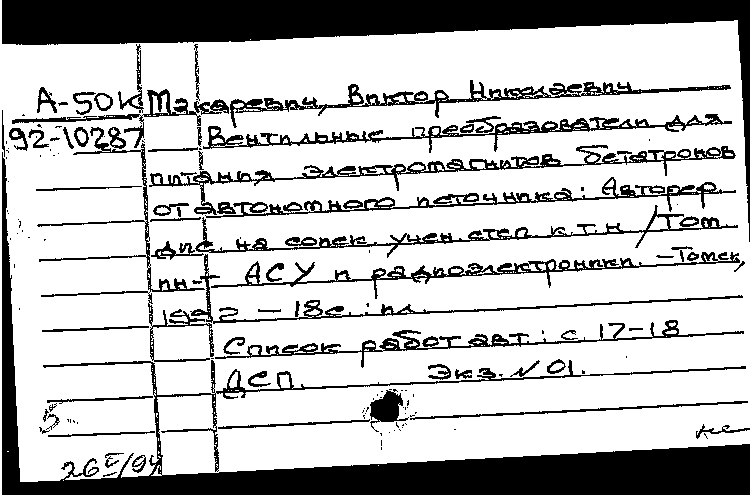 А-50К Макаревич, Виктор Николаевич
92-10287 Вентильные преобразователи для
питания электромагнитов бетатронов
от автономного источника: Автореф.
дис. на соиск. учен. степ к.т.н / Том.
ин-т АСУ и радиоэлектроники. – Томск,
1992 – 18с. : ил.
Список работ авт.: с. 17-18
ДСП. Экз. № 01.
5
26 V/94